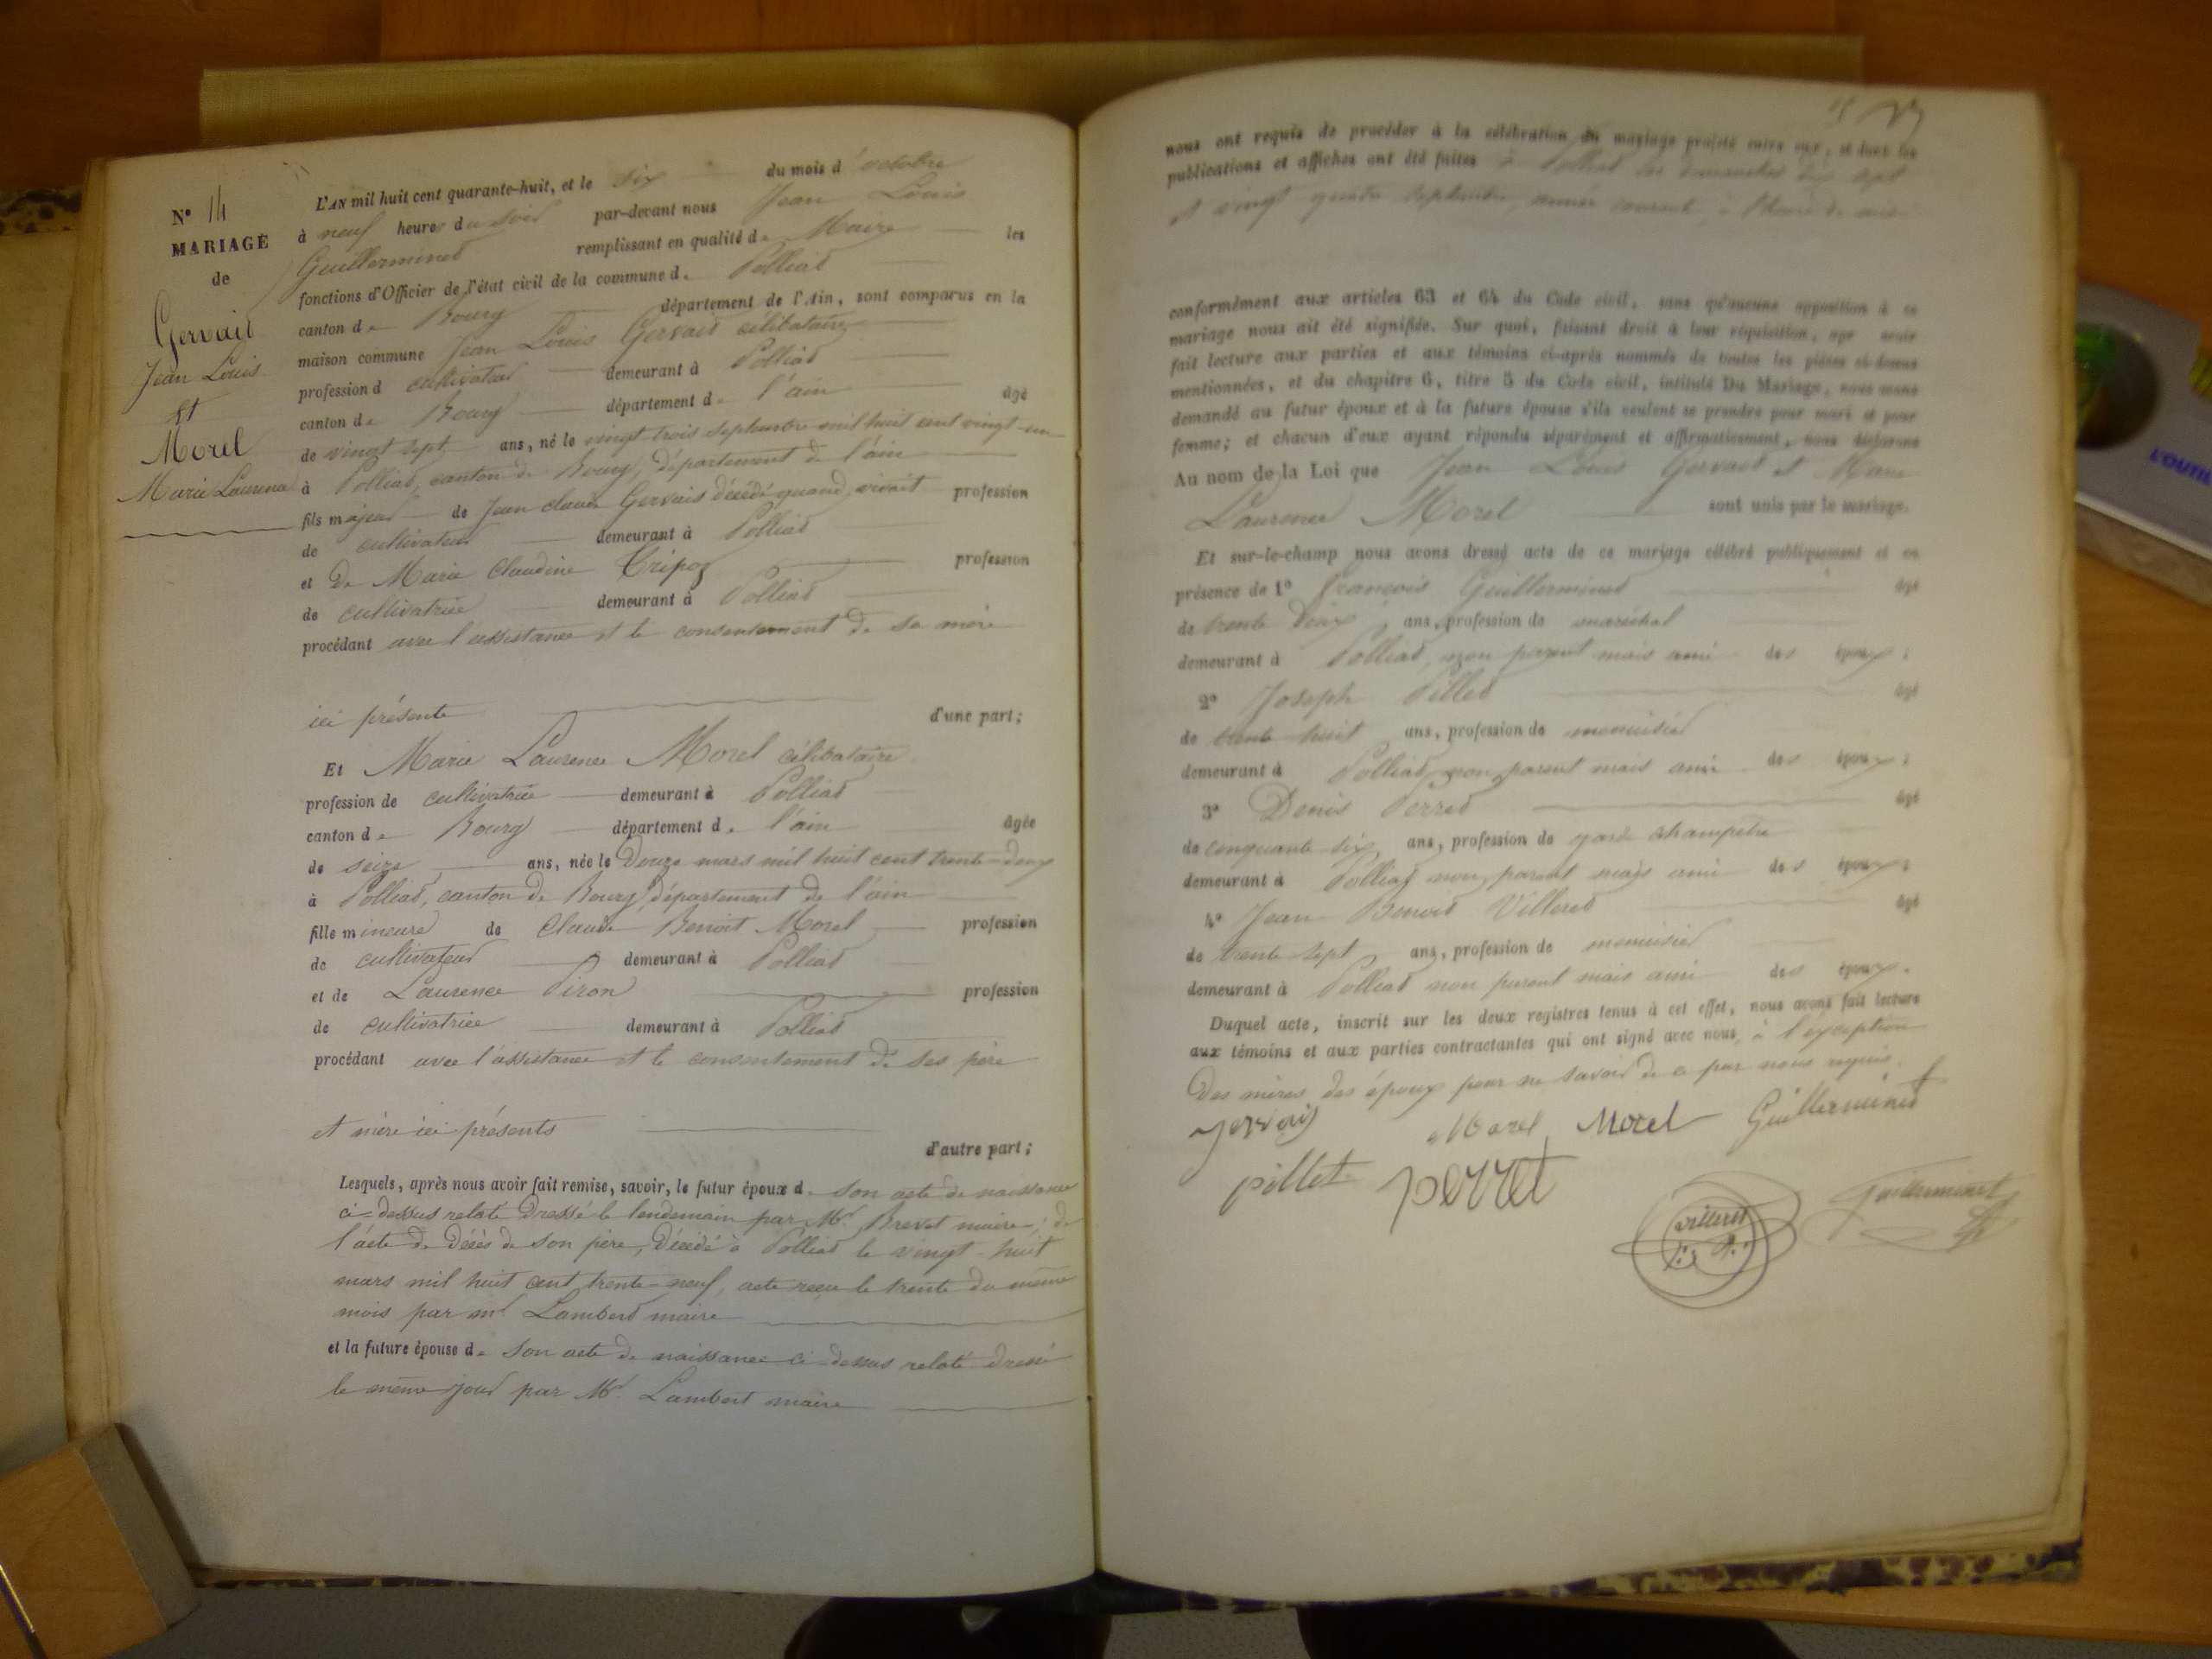 N° 14
MARIAGE
de
Gervais
Jean Louis
Et
Morel
Marie Laurence
L'AN mil huit cent quarante-huit, et le six du mois d'octobre
à neuf heures du soir par-devant nous Jean Louis
Guillerminet remplissant en qualité de Maire les
fonctions d'Officier de l'état civil de la commune de Polliat
canton de Bourg département de l'Ain, sont comparus en la
maison commune Jean Louis Gervais célibataire
profession d cultivateur demeurant à Polliat
canton de Bourg département de l'ain âgé
de vingt sept ans, né le vingt-trois septembre mil huit cent vingt-un
à Polliat, canton de Bourg, département de l'ain
fils majeur de Jean claude Gervais décédé quand vivait profession
de cultivateur demeurant à Polliat
et De Marie Claudine Tripoz profession
de cultivatrice demeurant à Polliat
procédant avec l'assistance et le consentement de sa mère
ici présente d'une part;
Et Marie Laurence Morel célibataire
profession de cultivatrice demeurant à Polliat
canton de Bourg département de l'ain âgée
de seize ans, née le Douze mars mil huit cent trente-deux
à Polliat, canton de Bourg, département de l'ain
fille mineure de Claude Benoit Morel profession
de cultivateur demeurant à Polliat
et de Laurence Piron profession
de cultivatrice demeurant à Polliat
procédant avec l'assistance et le consentement de ses père
et mère ici présents
d'autre part;
Lesquels, après nous avoir fait remise, savoir, le futur époux de son acte de naissance
ci-dessus relaté Dressé le lendemain par Mr Brevet maire; de
l'acte de décès de son père, Décédé à Polliat le vingt-huit
mars mil huit cent trente-neuf, acte reçu le trente du même
mois par mr Lambert maire
et la future épouse de son acte de naissance ci-dessus relaté dressé
le même jour par Mr Lambert maire
nous ont requis de procéder à la célébration du mariage projeté entre eux, et dont les
publications et affiches ont été faites à Polliat les dimanches dix sept
et vingt quatre septembre, année courant, à l'heure de midi
conformément aux articles 63 et 64 du Code civil, sans qu'aucune opposition à ce
mariage nous ait été signifiée. Sur quoi, faisant droit à leur réquisition, apr avoir
fait lecture aux parties et aux témoins ci-après nommés de toutes les pièces ci-dessus
mentionnées, et du chapitre 6, titre 5 du Code civil, intitulé Du Mariage, nous avons
demandé au futur époux et à la future épouse s'ils veulent se prendre pour mari et pour
femme; et chacun d'eux ayant répondu séparément et affirmativement, nous déclarons
Au nom de la Loi que Jean Louis Gervais et Marie
Laurence Morel sont unis par le mariage.
Et sur-le-champ nous avons dressé acte de ce mariage célébré publiquement et en
présence de 1° François Guillerminet âgé
de trente deux ans, profession de maréchal
demeurant à Polliat, non parent mais ami des époux;
2° Joseph Pillet âgé
de trente huit ans, profession de menuisier
demeurant à Polliat, non parent mais ami des époux;
3° Denis Perret âgé
de cinquante six ans, profession de garde champetre
demeurant à Polliat non parent mais ami des époux;
4° Jean Benoit Villeret âgé
de trente sept ans, profession de menuisier
demeurant à Polliat non parent mais ami des époux.
Duquel acte, inscrit sur les deux registres tenus à cet effet, nous avons fait lecture
aux témoins et aux parties contractantes qui ont signé avec nous, à l'exception
Des mères des époux pour ne savoir de ce par nous requis.
Gervais Morel Morel Guillerminet
pillet perret
villeret Guillerminet